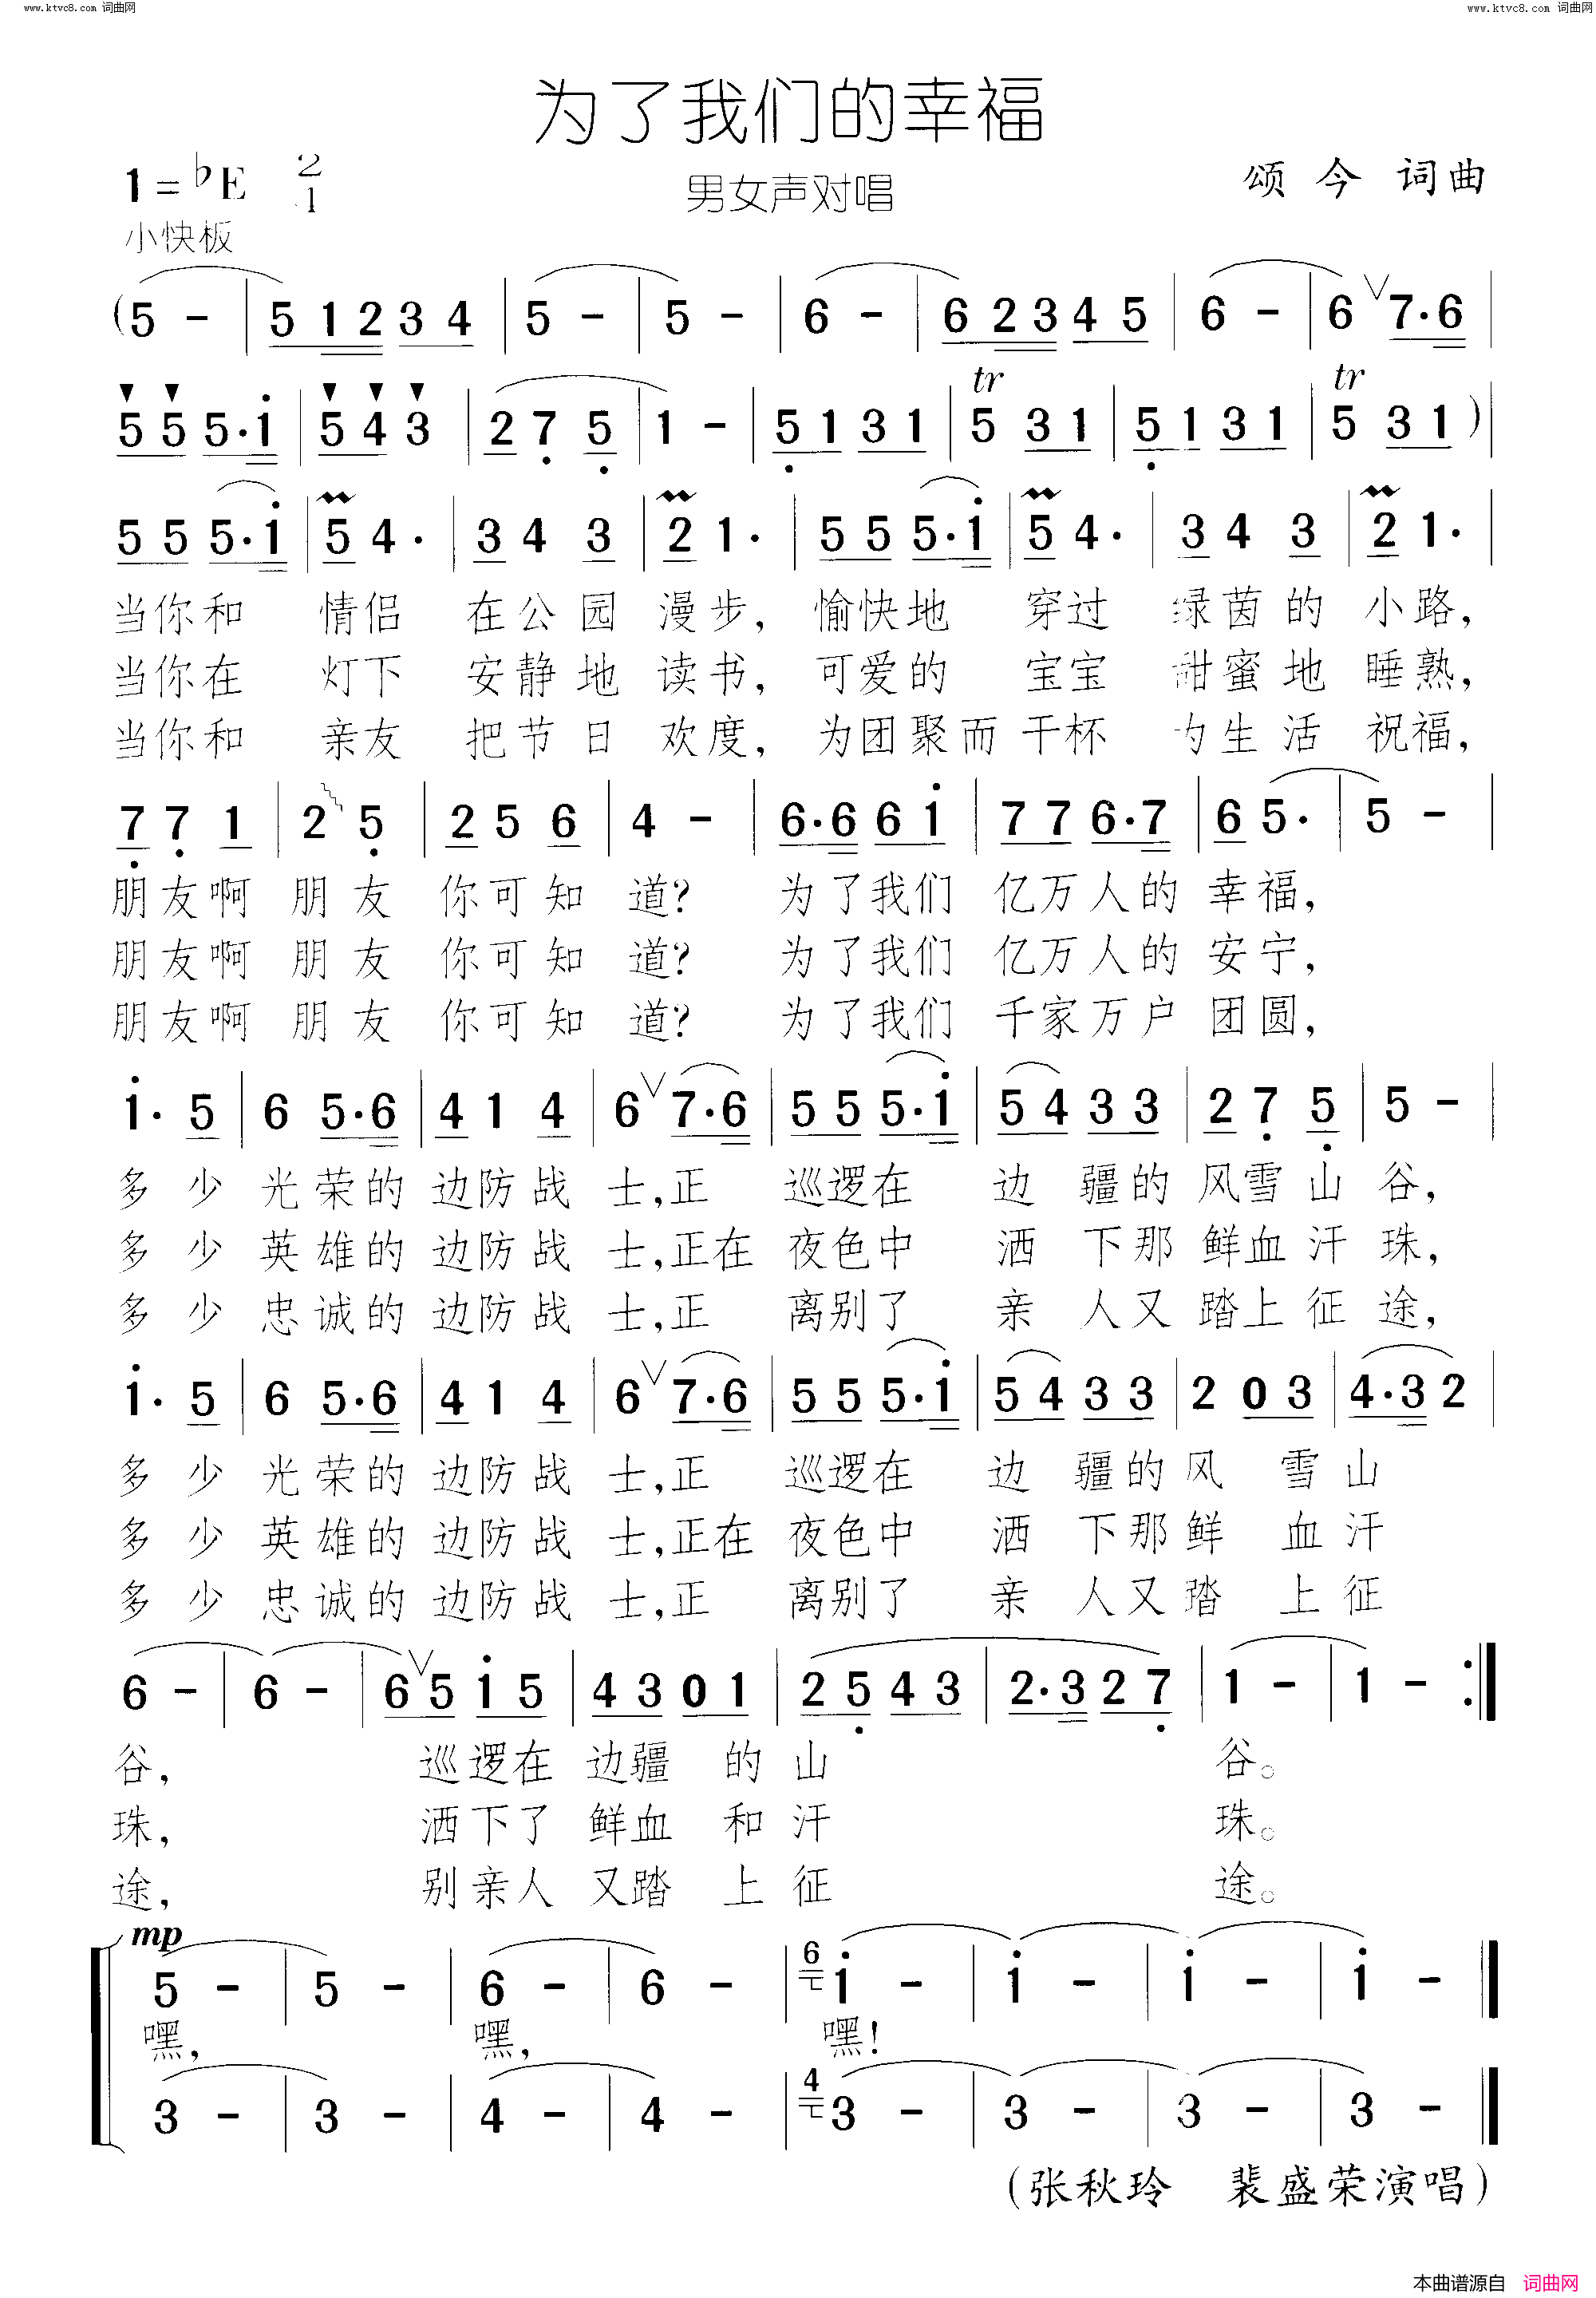 www.ktvc8.com 词曲网
www.ktvc8.com 词曲网
为了我们的幸福
1=♭E 2/4
男女声对唱
颂今 词曲
小快板
(5 - | 5 1 2 3 4 | 5 - | 5 - | 6 - | 6 2 3 4 5 | 6 - | 6 ∨ 7·6 |
tr tr
5 5 5·i | 5 4 3 | 2 7 5 | 1 - | 5 1 3 1 | 5 3 1 | 5 1 3 1 | 5 3 1 ) |
5 5 5·i | 5 4· | 3 4 3 | 2 1· | 5 5 5·i | 5 4· | 3 4 3 | 2 1· |
当你和 情侣 在公园 漫步, 愉快地 穿过 绿茵的 小路,
当你在 灯下 安静地 读书, 可爱的 宝宝 甜蜜地 睡熟,
当你和 亲友 把节日 欢度, 为团聚而 干杯 为生活 祝福,
7 7 1 | 2 5 | 2 5 6 | 4 - | 6·6 6 i | 7 7 6·7 | 6 5· | 5 - |
朋友啊 朋友 你可知 道? 为了我们 亿万人的 幸福,
朋友啊 朋友 你可知 道? 为了我们 亿万人的 安宁,
朋友啊 朋友 你可知 道? 为了我们 千家万户 团圆,
i· 5 | 6 5·6 | 4 1 4 | 6 ∨ 7·6 | 5 5 5·i | 5 4 3 3 | 2 7 5 | 5 - |
多少 光荣的 边防战 士,正 巡逻在 边 疆的 风雪山 谷,
多少 英雄的 边防战 士,正在 夜色中 洒 下那 鲜血汗 珠,
多少 忠诚的 边防战 士,正 离别了 亲 人又 踏上征 途,
i· 5 | 6 5·6 | 4 1 4 | 6 ∨ 7·6 | 5 5 5·i | 5 4 3 3 | 2 0 3 | 4·3 2 |
多少 光荣的 边防战 士,正 巡逻在 边 疆的 风 雪山
多少 英雄的 边防战 士,正在 夜色中 洒 下那 鲜 血汗
多少 忠诚的 边防战 士,正 离别了 亲 人又 踏 上征
6 - | 6 - | 6 ∨ 5 i 5 | 4 3 0 1 | 2 5 4 3 | 2·3 2 7 | 1 - | 1 - :‖
谷, 巡逻在 边疆 的 山 谷。
珠, 洒下了 鲜血 和 汗 珠。
途, 别亲人 又踏 上 征 途。
mp
5 - | 5 - | 6 - | 6 - | 6 i - | i - | i - | i - ‖
嘿, 嘿, 嘿!
3 - | 3 - | 4 - | 4 - | 4 3 - | 3 - | 3 - | 3 - ‖
(张秋玲 裴盛荣演唱)
本曲谱源自 词曲网